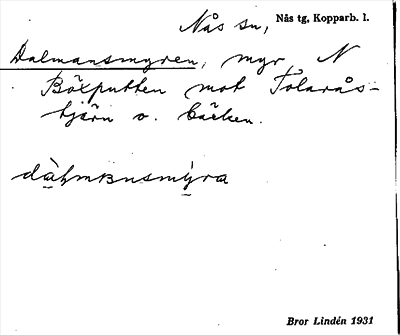 Nås sn, Nås tg, Kopparb. l.
Dalmansmyren, myr N
Böxputten mot Tolarås-
tjärn o. bäcken.
dàlmansmỳra
Bror Lindén 1931